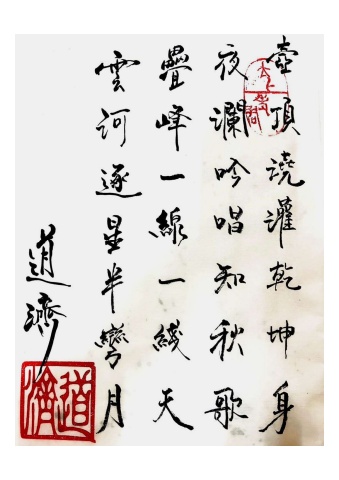 壺頂澆灌乾坤身
夜瀾吟唱知秋歌
疊峰一線一綫天
雲河逐星半彎月
道濟
道濟